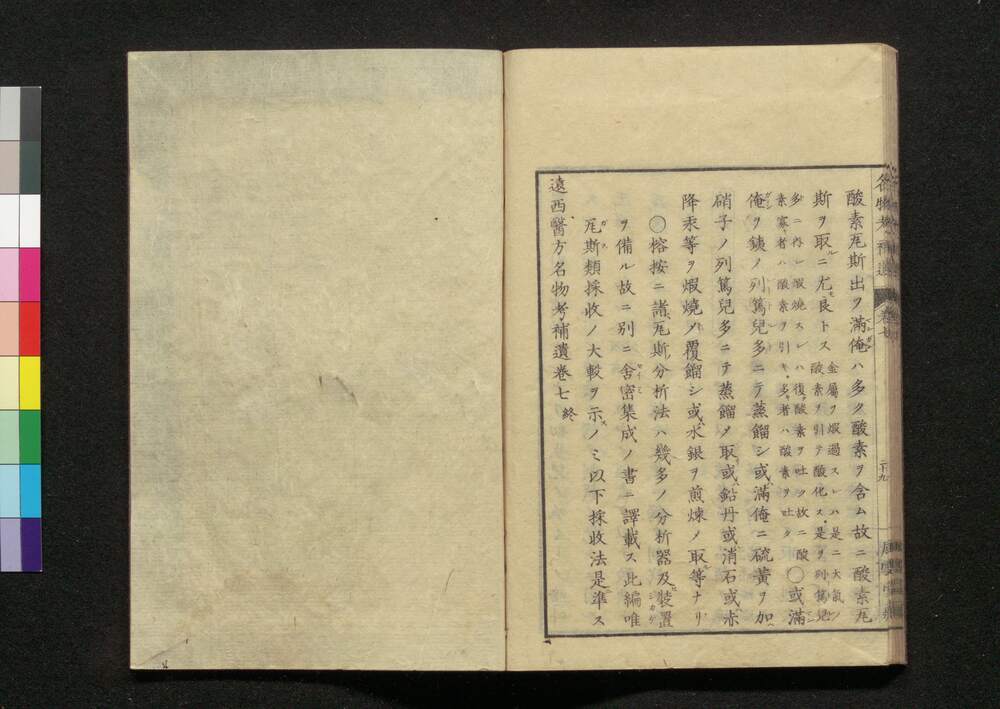 名物考補遺 卷七 二十九
酸素瓦斯出ヲ滿俺ハ多ク酸素ヲ含ム故ニ酸素瓦
斯ヲ取ルニ尤モ良トス 金屬ヲ煆過スレハ是ニ大氣ノ
酸素ヲ引テ酸化ス是ヲ列篤兒
多ニ内レ煆燒スレハ復酸素ヲ吐ク故ニ酸
素寡者ハ酸素ヲ引キ多者ハ酸素ヲ吐ク
○或滿
俺ヲ銕ノ列篤兒多ニテ蒸餾シ或滿俺ニ硫黄ヲ加
硝子ノ列篤兒多ニテ蒸餾メ取或鉛丹或消石或赤
降汞等ヲ煆燒メ覆餾シ或水銀ヲ煎煉メ取等ナリ
○榕按ニ諸瓦斯分析法ハ幾多ノ分析器及裝置
ヲ備ル故ニ別ニ舍密集成ノ書ニ譯載ス此編唯
瓦斯類採收ノ大較ヲ示スノミ以下採收法是準ス
遠西醫方名物考補遺卷七 終